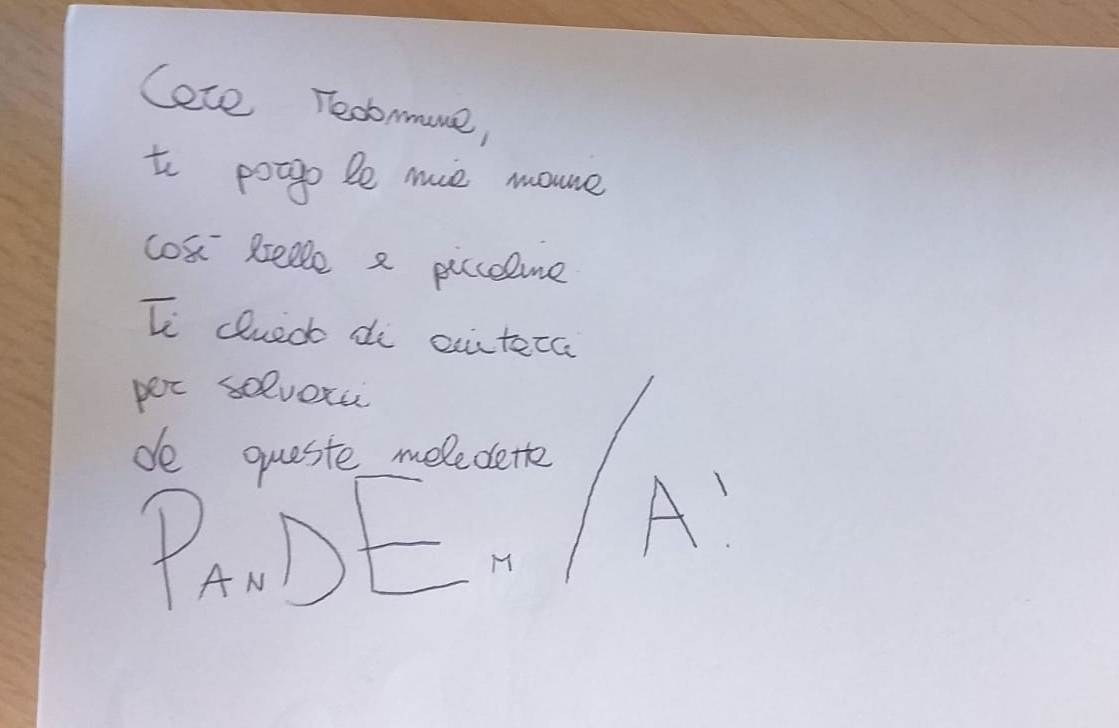 Cara Madonnina,
ti porgo la mia manina
così bella e piccolina
Ti chiedo di aiutarci
per salvarci
da questa maledetta
PANDEMIA!